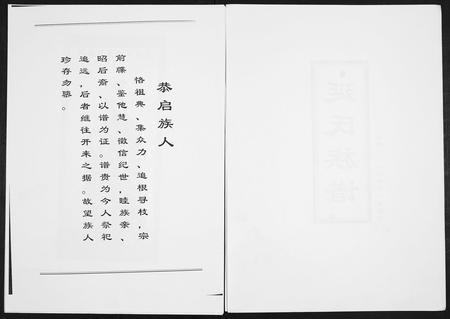 恭启族人
恪祖典、集众力、追根寻枝，宗
前牒、鉴他慧、徵信纪世，睦族亲、
昭后裔、以谱为证。谱贵为今人祭祀
追远，后者继往开来之据。故望族人
珍存勿亵。
延氏族谱